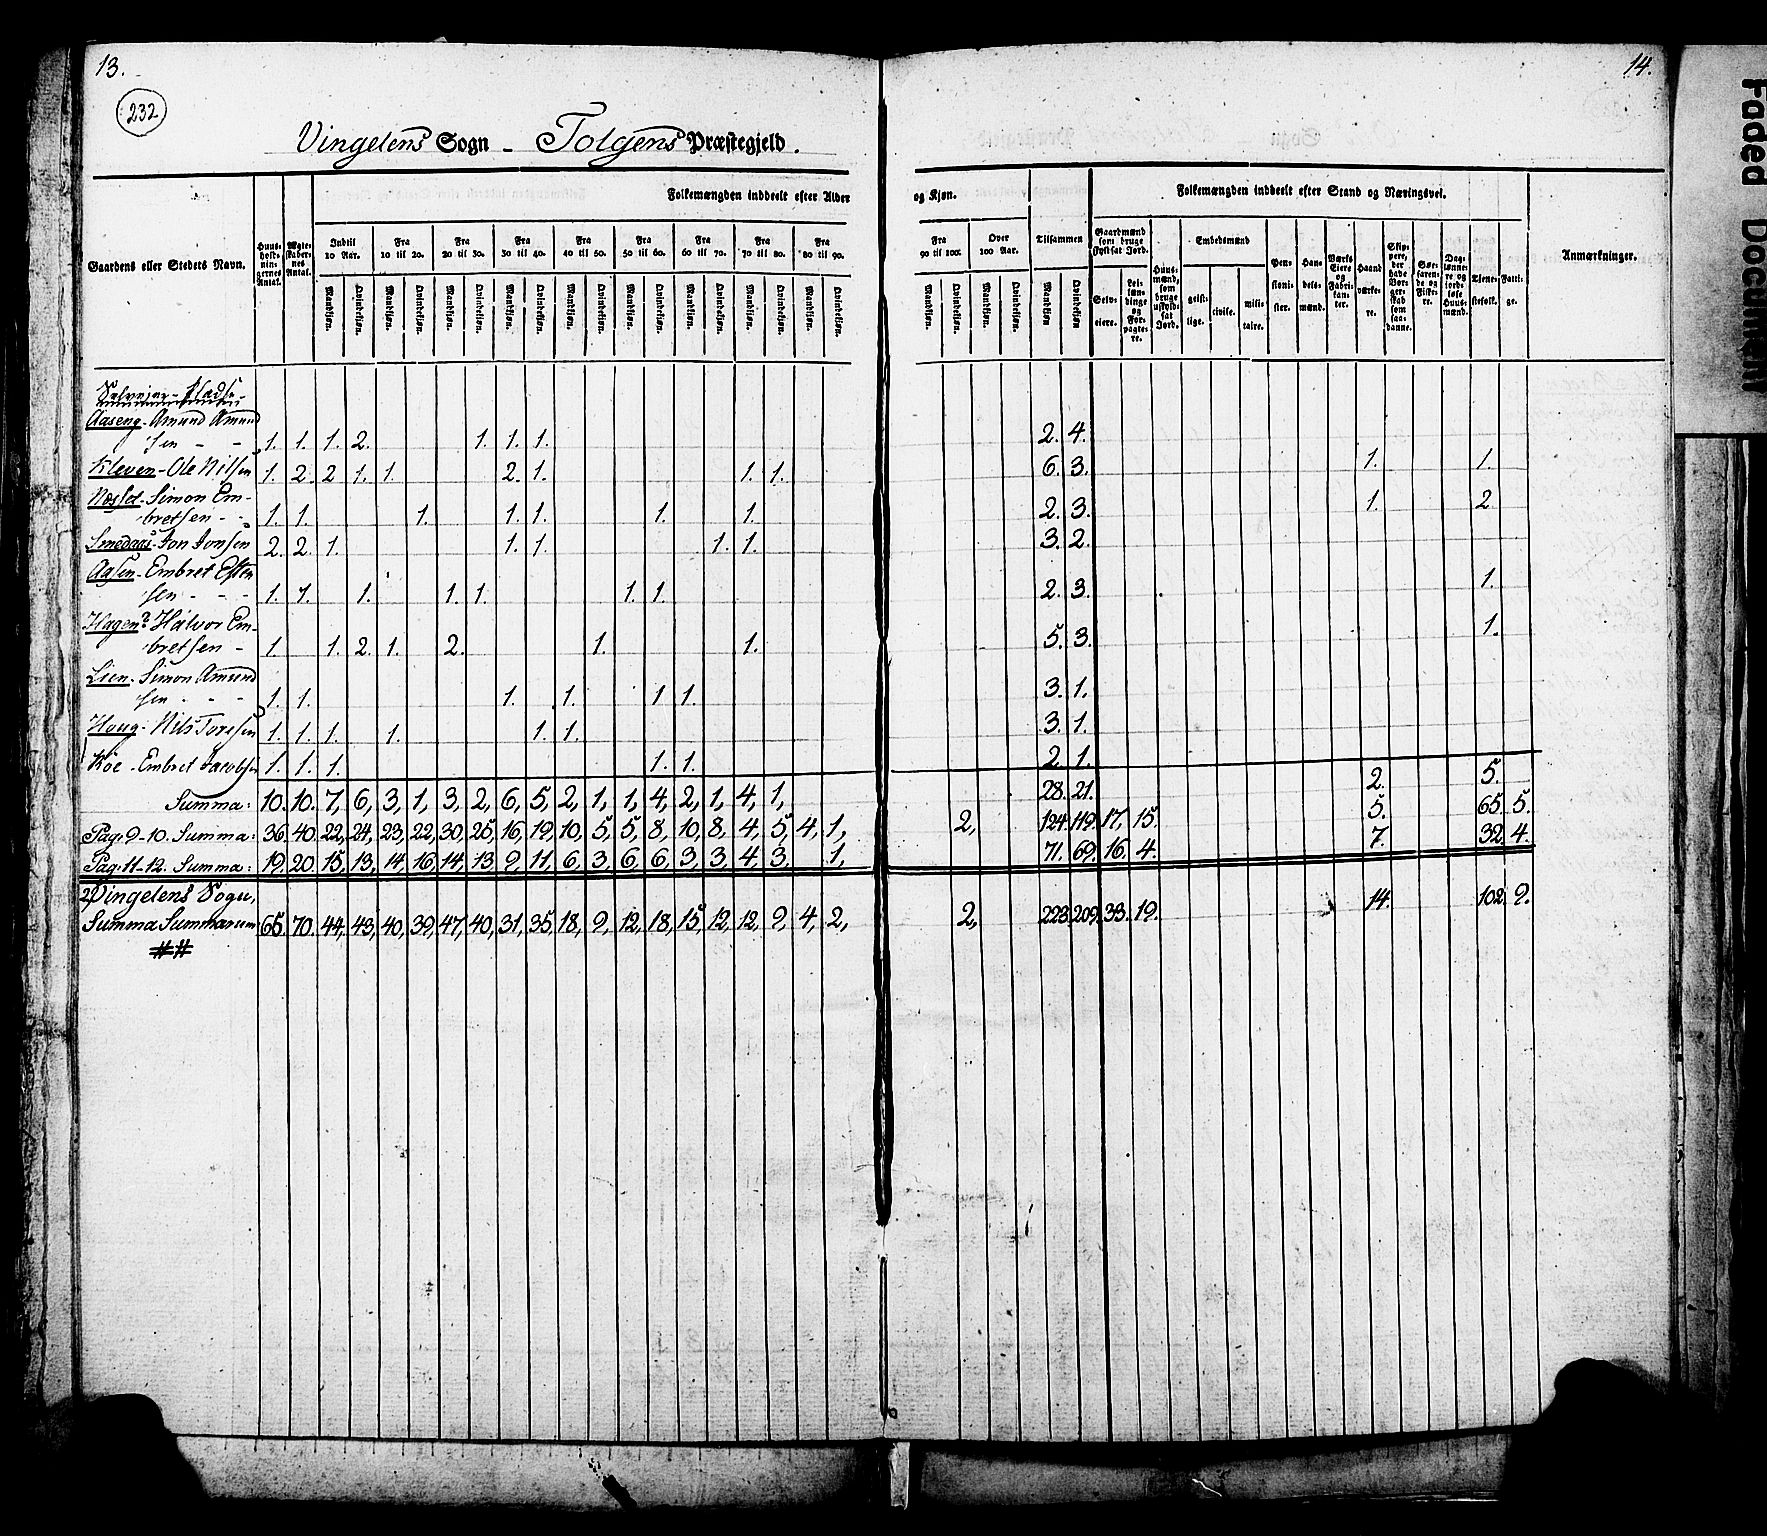 13.
14.
232
Vingelens Sogn - Tolgens Præstegjeld.
Folkemængden inddeelt efter Alder og Kjøn. Folkemængden inddeelt efter Stand og Næringsvei.
Gaardens eller Stedets Navn. Huus-holdnin-gernes Antal. Ægte-skaber-nes Antal. Indtil 10 Aar. Fra 10 til 20. Fra 20 til 30. Fra 30 til 40. Fra 40 til 50. Fra 50 til 60. Fra 60 til 70. Fra 70 til 80. Fra 80 til 90. Fra 90 til 100. Over 100 Aar. Tilsammen Gaardmænd som bruge skyldsat Jord. Huus-mænd, som bruge uskyldsat Jord. Embedsmænd Pensionister. Handelsmænd. Værks-Eiere og Fabrikanter. Haandværkere. Skippere, der have Borgerskab som saadanne. Søfarende og Fiskere. Daglønnere og jordløse Huusmænd. Tjenestefolk. Fattige. Anmærkninger.
Mandkjøn. Qvindekjøn. Mandkjøn. Qvindekjøn. Mandkjøn. Qvindekjøn. Mandkjøn. Qvindekjøn. Mandkjøn. Qvindekjøn. Mandkjøn. Qvindekjøn. Mandkjøn. Qvindekjøn. Mandkjøn. Qvindekjøn. Mandkjøn. Qvindekjøn. Mandkjøn. Qvindekjøn. Mandkjøn. Qvindekjøn. Mandkjøn Qvindekjøn Selveiere. Leilændinge og Forpagtere. geistlige. civile. militaire.
Pladse
Aaseng - Amund Amund
sen - - 1. 1. 1. 2. 1. 1. 1. 2. 4.
Kleven - Ole Nilsen 1. 2. 2. 1. 1. 2. 1. 1. 1. 6. 3. 1. 1.
Næsset - Simon Em-
bretsen - - 1. 1. 1. 1. 1. 1. 1. 2. 3. 1. 2.
Smedaas - Jon Jonsen 2. 2. 1. 1. 1. 1. 1. 3. 2.
Aasen - Embret Esten
sen - - - 1. 1. 1. 1. 1. 1. 1. 2. 3. 1.
Hagen? Halvor Em-
bretsen - 1. 1. 2. 1. 2. 1. 1. 5. 3. 1.
Lien - Simon Amund
sen - - 1. 1. 1. 1. 1. 1. 3. 1.
Houg - Nils Torssen 1. 1. 1. 1. 1. 1. 3. 1.
Koe - Embret Jacobsen 1. 1. 1. 1. 1. 2. 1.
Summa: 10. 10. 7, 6, 3, 1, 3, 2, 6, 5, 2, 1, 1, 4, 2, 1, 4, 1, 28. 21. 2. 5.
Pag: 9-10. Summa: 36. 40. 22, 24, 23, 22, 30, 25, 16, 19, 10, 5, 5, 8, 10, 8, 4, 5, 4, 1, 2, 124. 119. 17, 15. 5. 65. 5.
Pag: 11-12. Summa: 19. 20. 15, 13, 14, 16, 14, 13, 9, 11, 6, 3, 6, 6, 3, 3, 4, 3. 1, 71. 69. 16. 4. 7. 32. 4.
2) Vingelens Sogn,
Summa Summarum 65. 70. 44, 43, 40, 39, 47, 40, 31, 35, 18, 9, 12, 18, 15, 12, 12, 9, 4, 2, 2, 223. 209. 33. 19. 14. 102. 9.
Faded Document